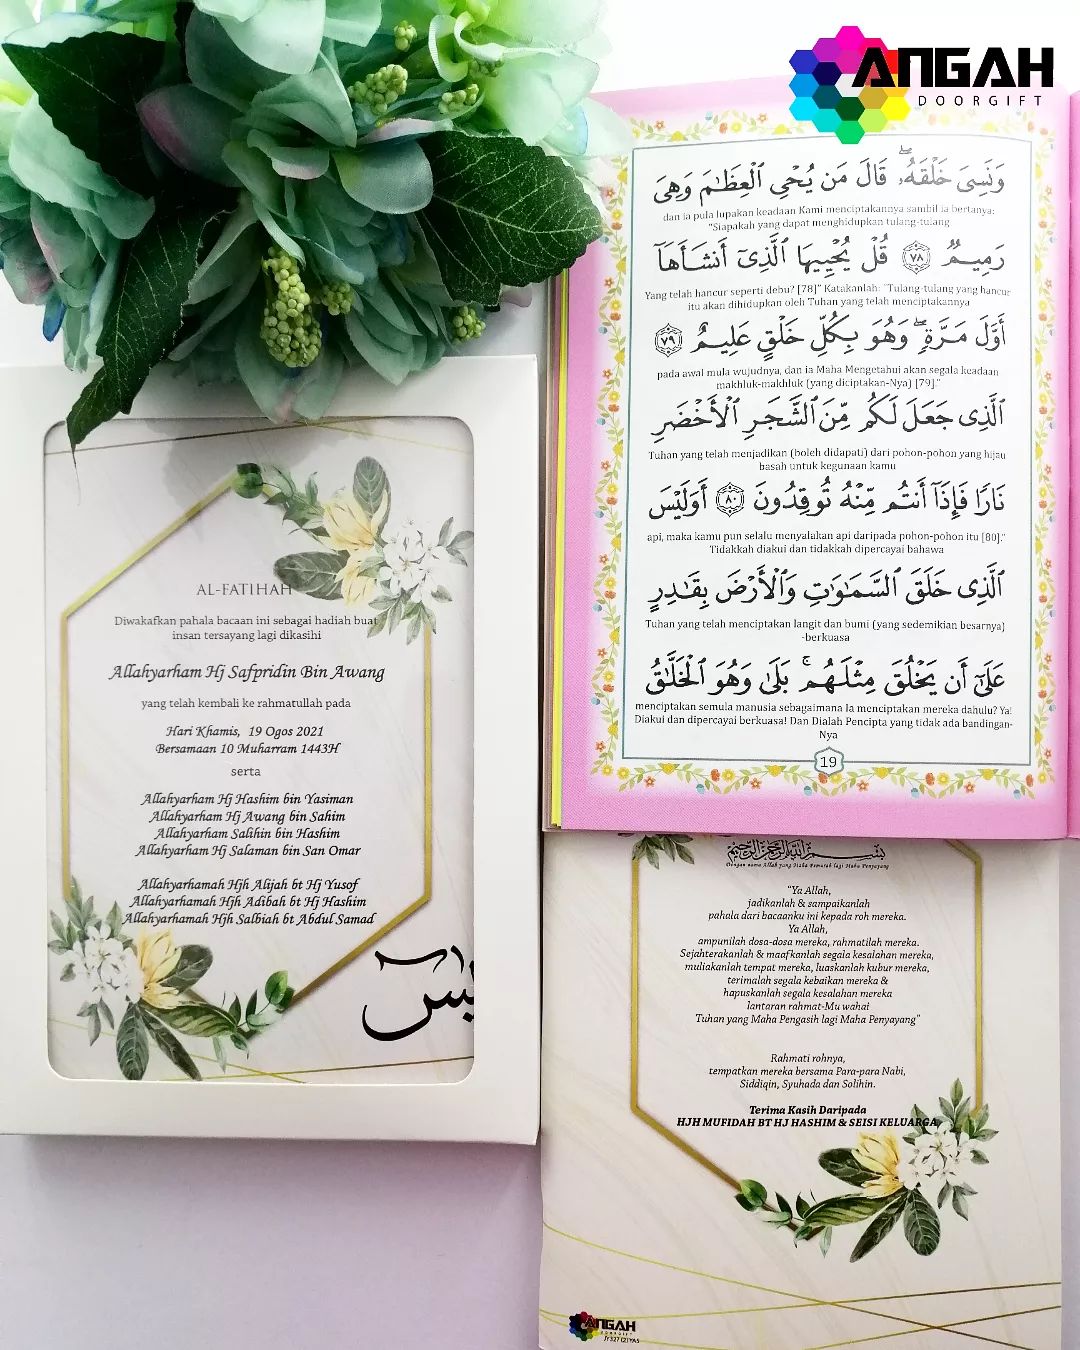 ANGAH
DOORGIFT
وَنَسِىَ خَلْقَهُۥ ۖ قَالَ مَن يُحْىِ ٱلْعِظَـٰمَ وَهِىَ
dan ia pula lupakan keadaan Kami menciptakannya sambil ia bertanya:
"Siapakah yang dapat menghidupkan tulang-tulang
رَمِيمٌ ٧٨ قُلْ يُحْيِيهَا ٱلَّذِىٓ أَنشَأَهَآ
Yang telah hancur seperti debu? [78]" Katakanlah: "Tulang-tulang yang hancur
itu akan dihidupkan oleh Tuhan yang telah menciptakannya
أَوَّلَ مَرَّةٍ ۖ وَهُوَ بِكُلِّ خَلْقٍ عَلِيمٌ ٧٩
pada awal mula wujudnya, dan ia Maha Mengetahui akan segala keadaan
makhluk-makhluk (yang diciptakan-Nya) [79]."
ٱلَّذِى جَعَلَ لَكُم مِّنَ ٱلشَّجَرِ ٱلْأَخْضَرِ
Tuhan yang telah menjadikan (boleh didapati) dari pohon-pohon yang hijau
basah untuk kegunaan kamu
نَارًا فَإِذَآ أَنتُم مِّنْهُ تُوقِدُونَ ٨٠ أَوَلَيْسَ
api, maka kamu pun selalu menyalakan api daripada pohon-pohon itu [80]."
Tidakkah diakui dan tidakkah dipercayai bahawa
ٱلَّذِى خَلَقَ ٱلسَّمَـٰوَٰتِ وَٱلْأَرْضَ بِقَـٰدِرٍ
Tuhan yang telah menciptakan langit dan bumi (yang sedemikian besarnya)
-berkuasa
عَلَىٰٓ أَن يَخْلُقَ مِثْلَهُم ۚ بَلَىٰ وَهُوَ ٱلْخَلَّـٰقُ
menciptakan semula manusia sebagaimana Ia menciptakan mereka dahulu? Ya!
Diakui dan dipercayai berkuasa! Dan Dialah Pencipta yang tidak ada bandingan-
Nya
19
AL-FATIHAH
Diwakafkan pahala bacaan ini sebagai hadiah buat
insan tersayang lagi dikasihi
Allahyarham Hj Safpridin Bin Awang
yang telah kembali ke rahmatullah pada
Hari Khamis, 19 Ogos 2021
Bersamaan 10 Muharram 1443H
serta
Allahyarham Hj Hashim bin Yasiman
Allahyarham Hj Awang bin Sahim
Allahyarham Salihin bin Hashim
Allahyarham Hj Salaman bin San Omar
Allahyarhamah Hjh Alijah bt Hj Yusof
Allahyarhamah Hjh Adibah bt Hj Hashim
Allahyarhamah Hjh Salbiah bt Abdul Samad
يس
بسم الله الرحمن الرحيم
Dengan nama Allah yang Maha Pemurah lagi Maha Penyayang
"Ya Allah,
jadikanlah & sampaikanlah
pahala dari bacaanku ini kepada roh mereka.
Ya Allah,
ampunilah dosa-dosa mereka, rahmatilah mereka.
Sejahterakanlah & maafkanlah segala kesalahan mereka,
muliakanlah tempat mereka, luaskanlah kubur mereka,
terimalah segala kebaikan mereka &
hapuskanlah segala kesalahan mereka
lantaran rahmat-Mu wahai
Tuhan yang Maha Pengasih lagi Maha Penyayang"
Rahmati rohnya,
tempatkan mereka bersama Para-para Nabi,
Siddiqin, Syuhada dan Solihin.
Terima Kasih Daripada
HJH MUFIDAH BT HJ HASHIM & SEISI KELUARGA
ANGAH
DOORGIFT